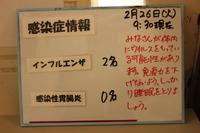 感染症情報
2月26日(火)
9:30現在
インフルエンザ 2名
感染性胃腸炎 0名
みなさんが体内
にウイルスをもってい
る可能性があり
ます。免疫力を下
げないよう、しっか
り睡眠をとりま
しょう。